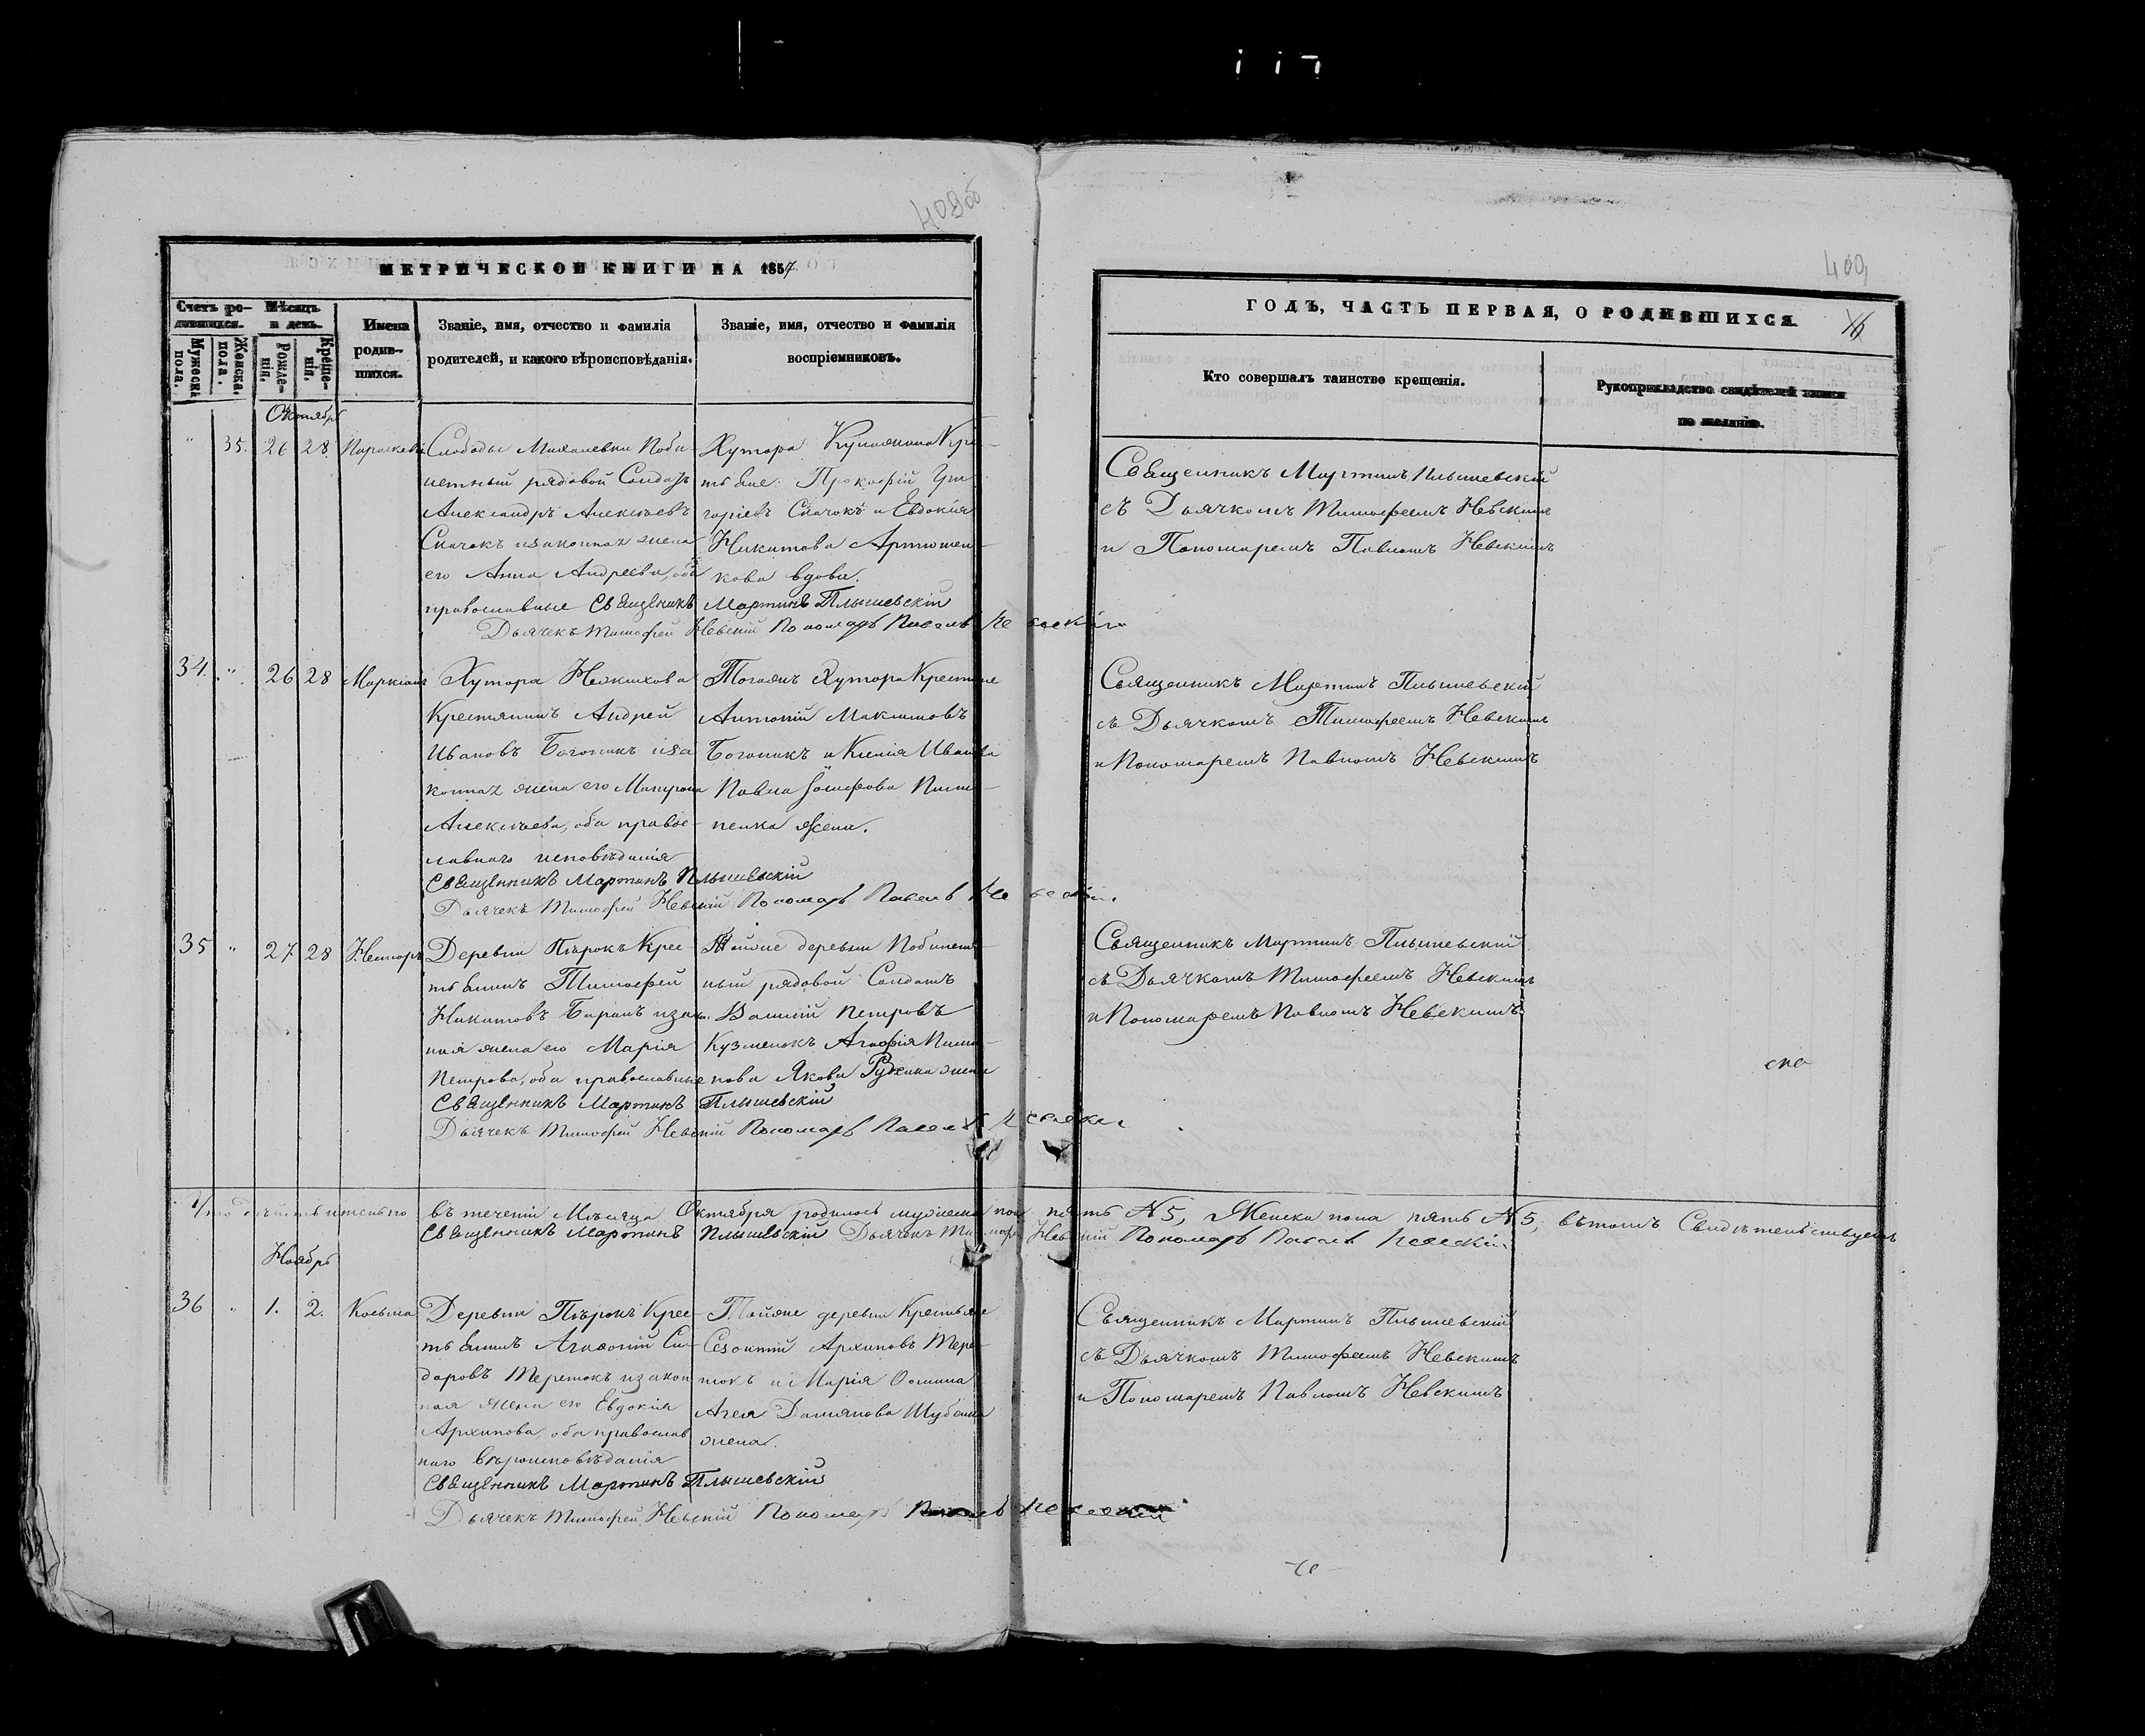 409об
МЕТРИЧЕСКОЙ КНИГИ НА 1857
Счетъ ро-
дившихся.
Мужеска
пола.
Женска.
пола.
Мѣсяцъ
и день.
Рожде-
нія.
Креще-
нія.
Имена
родив-
шихся.
Званіе, имя, отчество и фамилія
родителей, и какого вѣроисповѣданія.
Званіе, имя, отчество и фамилія
воспріемниковъ.
Октябрь
" 35. 26 28 Параскева
Слободы Михалевки
рядовой Солдатъ
Александръ Алексѣевъ
Скачокъ и законная жена
его Анна Андреева, оба
православные
Хутора Кре-
стьяне: Прокофій Гри
горіевъ Скачокъ и Евдокія
Никитова Артюшен-
кова вдова.
Священникъ Мартинъ Плышевскій
Дьячекъ Тимофей Невскій Пономарь Павелъ Невскій
34. " 26 28 Маркіанъ
Хутора
Крестянинъ Андрей
Ивановъ иза
конная жена его Матрона
Алексѣева, оба право-
славнаго исповѣданія
Тогожъ Хутора Крестяне
Антоній Максимовъ
и Ксенія Иванова
Павла Іосифова
жена.
Священникъ Мартинъ Плышевскій
Дьячекъ Тимофей Невскій Пономарь Павелъ Невскій
35 " 27 28 Несторъ
Деревни Пѣрокъ Крес-
тьянинъ Тимофей
Никитовъ Баранъ изак.
ная жена его Марія
Петрова, оба православные
Тойже деревни
ный рядовой Солдатъ
Василій Петровъ
Кузменокъ Агафія
нова Якова жена
Священникъ Мартинъ Плышевскій
Дьячекъ Тимофей Невскій Пономарь Павелъ Невскій
Что дѣйствительно въ теченіи Мѣсяца Октября родилось мужеска пола пять № 5, Женска пола пять № 5, вътомъ Свидѣтельствуемъ
Священникъ Мартинъ Плышевскій Дьячекъ Тимофей Невскій Пономарь Павелъ Невскій
Ноябрь
36 " 1. 2. Косьма
Деревни Пѣрокъ Крес-
тьянинъ Агафоній Си-
доровъ Теретокъ изакон
ная жена его Евдокія
Архипова, оба православ
наго вѣроисповѣданія
Тойже деревни Крестьяне
Архиповъ Тере-
токъ и Марія
Агея Дамянова
жена.
Священникъ Мартинъ Плышевскій
Дьячекъ Тимофей Невскій Пономарь Павелъ Невскій
400,
ГОДЪ, ЧАСТЬ ПЕРВАЯ, О РОДИВШИХСЯ.
Кто совершалъ таинство крещенія.
Рукоприкладство свидѣтелей записи
по желанію.
Священникъ Мартинъ Плышевскій
съ Дьячкомъ Тимофеемъ Невскимъ
и Пономаремъ Павломъ Невскимъ
Священникъ Мартинъ Плышевскій
съ Дьячкомъ Тимофеемъ Невскимъ
и Пономаремъ Павломъ Невскимъ
Священникъ Мартинъ Плышевскій
съ Дьячкомъ Тимофеемъ Невскимъ
и Пономаремъ Павломъ Невскимъ
Священникъ Мартинъ Плышевскій
съ Дьячкомъ Тимофеемъ Невскимъ
и Пономаремъ Павломъ Невскимъ